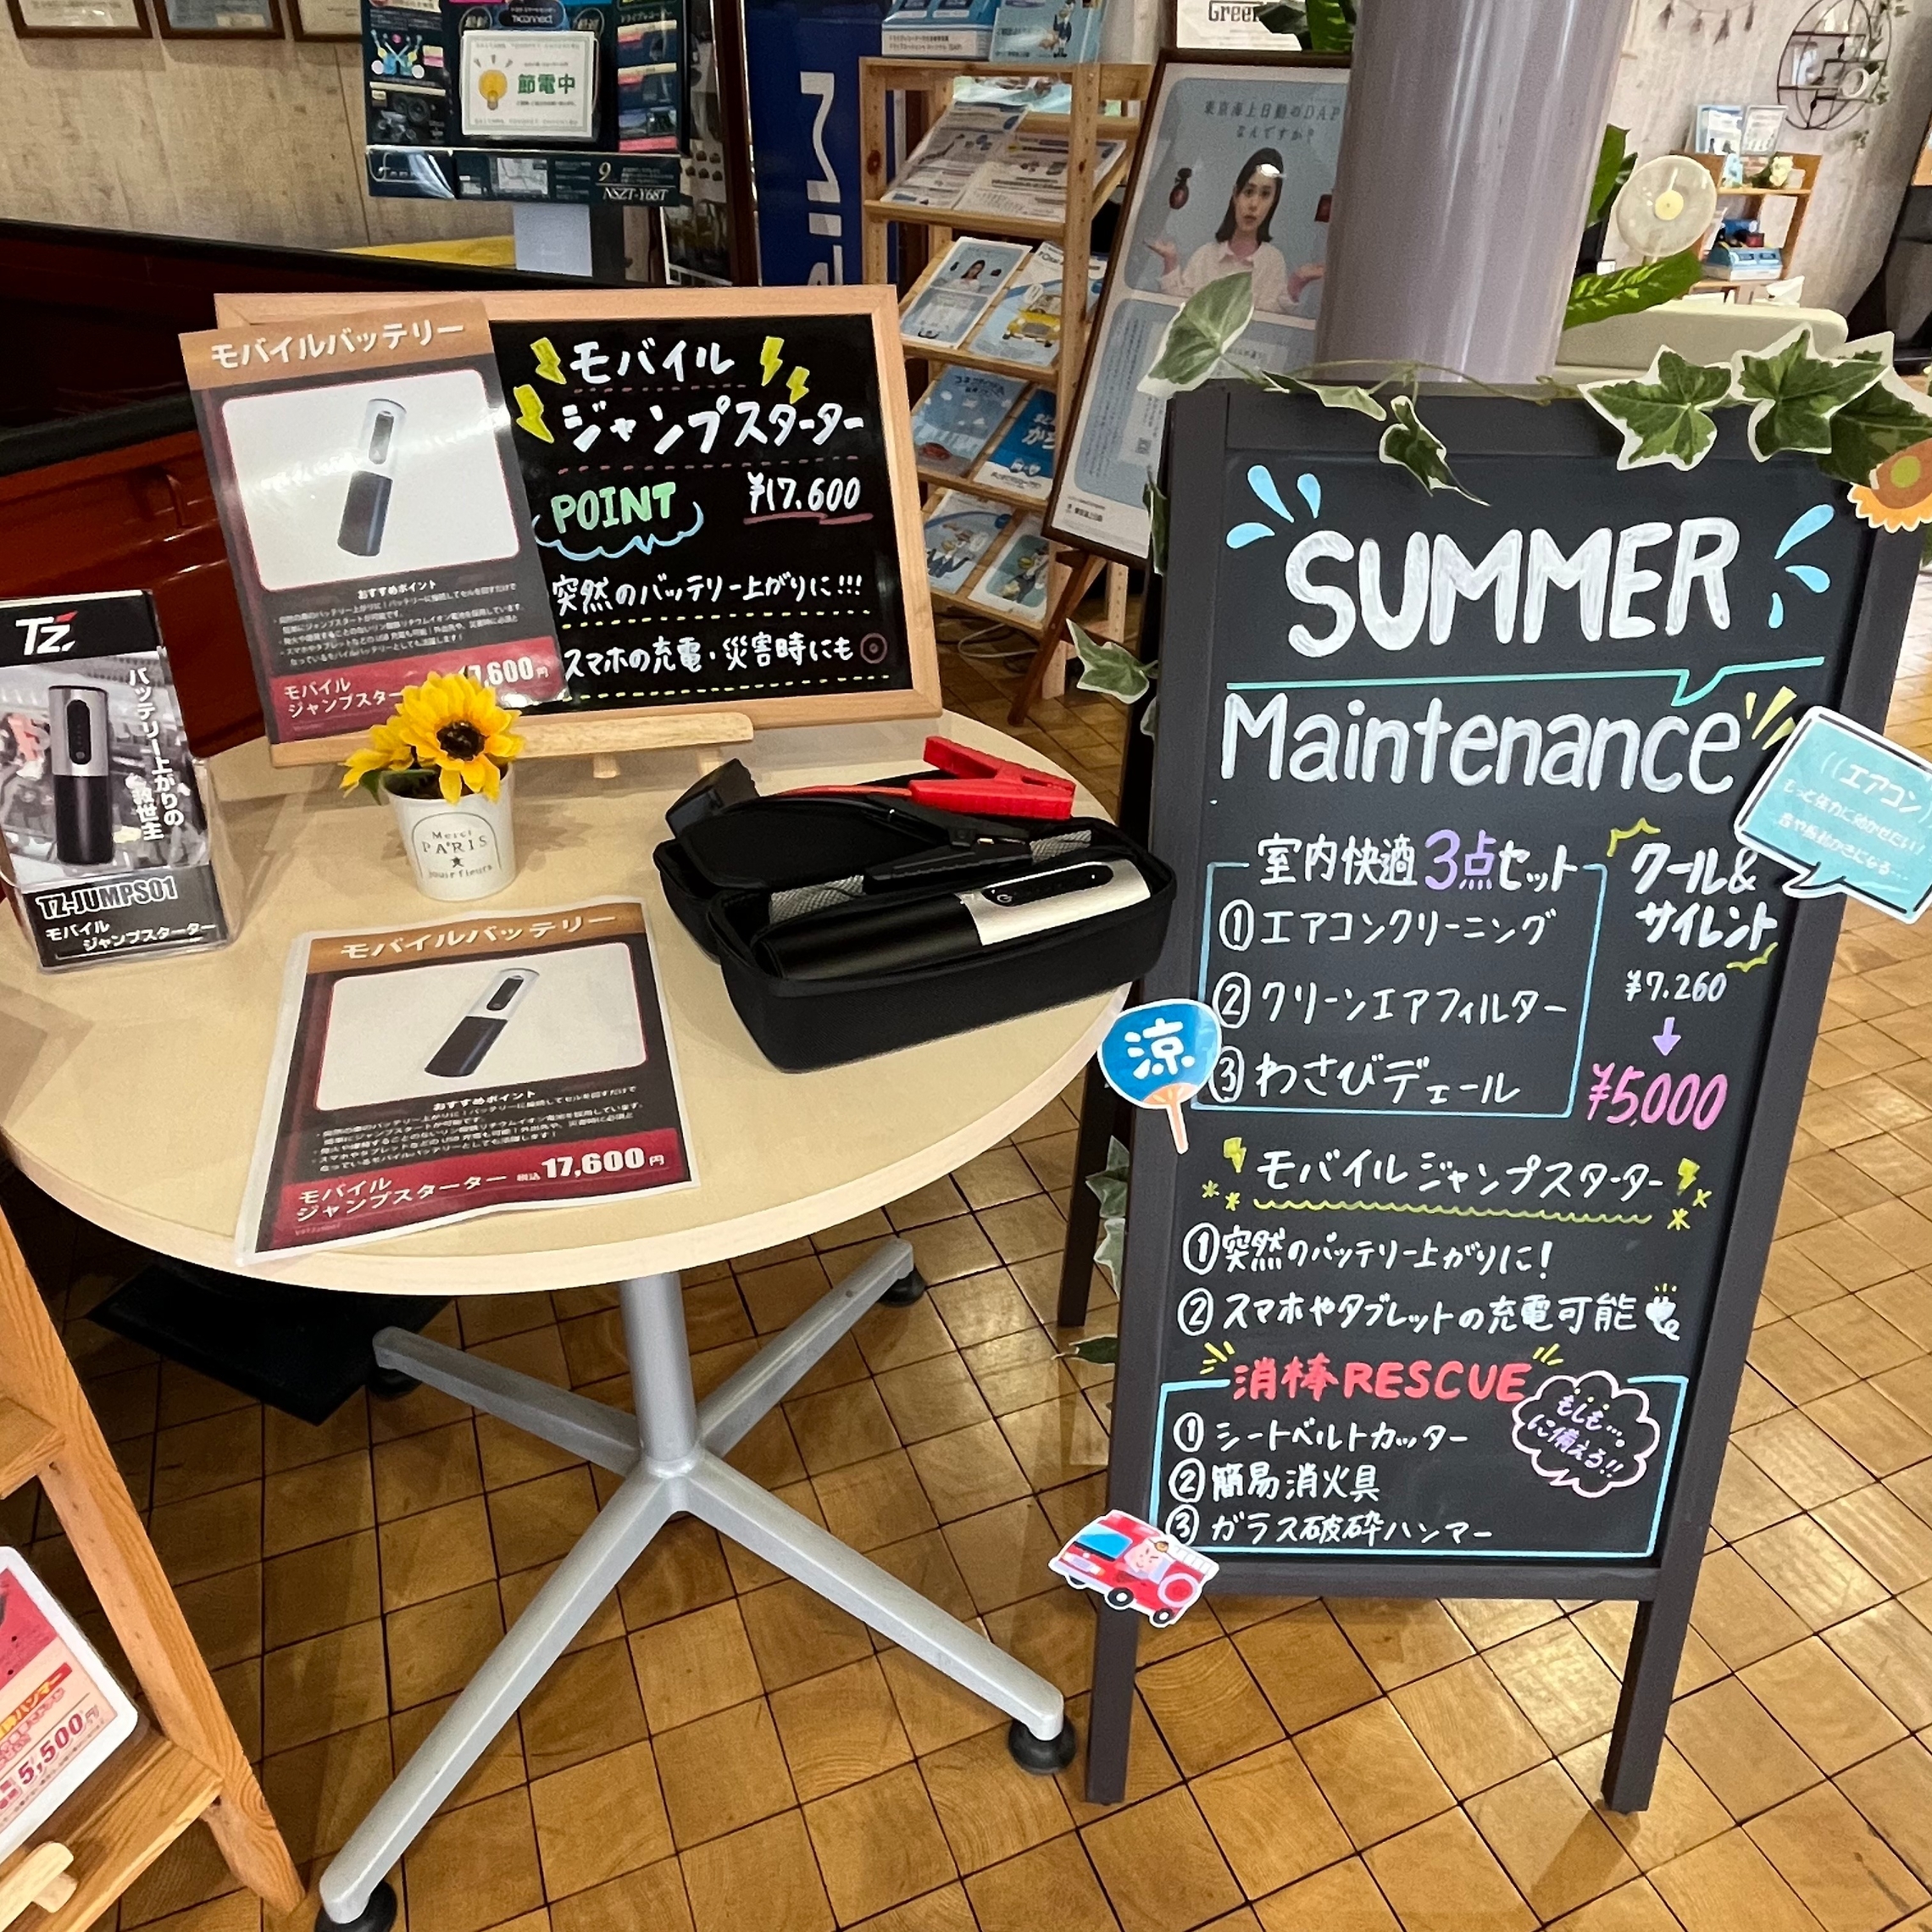 Green
節電中
9
NSZT-Y68T
東京海上日動のDAP
なんですか?
モバイルバッテリー
おすすめポイント
17,600円
モバイル
モバイル
ジャンプスターター
POINT
¥17.600
突然のバッテリー上がりに!!!
スマホの充電・災害時にも◎
TZ
バッテリー上がりの
救世主
TZ-JUMPS01
モバイル
ジャンプスターター
Merci
PARIS
モバイルバッテリー
おすすめポイント
モバイル
ジャンプスターター 税込 17,600円
SUMMER
Maintenance
エアコン
もっと強力に効かせたい!
音や振動が気になる…
室内快適3点セット
①エアコンクリーニング
②クリーンエアフィルター
③わさびデェール
クール&
サイレント
¥7.260
↓
¥5,000
涼
モバイルジャンプスターター
①突然のバッテリー上がりに!
②スマホやタブレットの充電可能
消棒RESCUE
もしも…。
に備える!!
①シートベルトカッター
②簡易消火具
③ガラス破砕ハンマー
5,500円